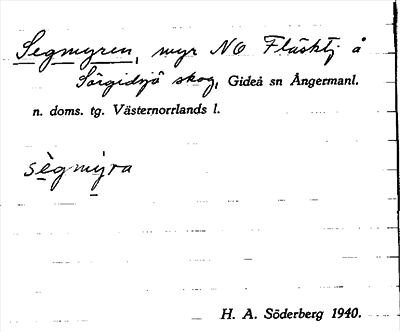 Segmyren, myr NO Fläsktj å
Sörgidsjö skog, Gideå sn Ångermanl.
n. doms. tg. Västernorrlands l.
sègmyra
H. A. Söderberg 1940.